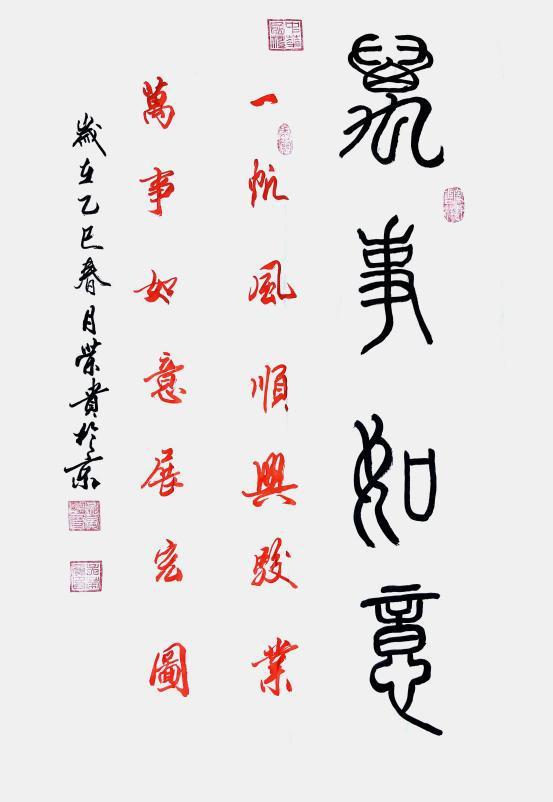 萬事如意
一帆風順興駿業
萬事如意展宏圖
歲在乙巳春月荣貴於京